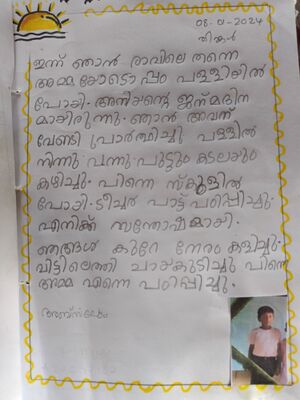 08-01-2024
തിങ്കൾ
ഇന്ന് ഞാൻ രാവിലെ തന്നെ
അമ്മയോടൊപ്പം പള്ളിയിൽ
പോയി. അനിയന്റെ ജന്മദിന
മായിരുന്നു. ഞാൻ അവന്
വേണ്ടി പ്രാർത്ഥിച്ചു പള്ളിൽ
നിന്നു വന്നു പുട്ടും കടലയും
കഴിച്ചു. പിന്നെ സ്കൂളിൽ
പോയി. ടീച്ചർ പാട്ട് പഠിപ്പിച്ചു.
എനിക്ക് സന്തോഷമായി.
ഞങ്ങൾ കുറേ നേരം കളിച്ചു.
വീട്ടിലെത്തി ചായകുടിച്ചു പിന്നെ
അമ്മ എന്നെ പഠിപ്പിച്ചു.